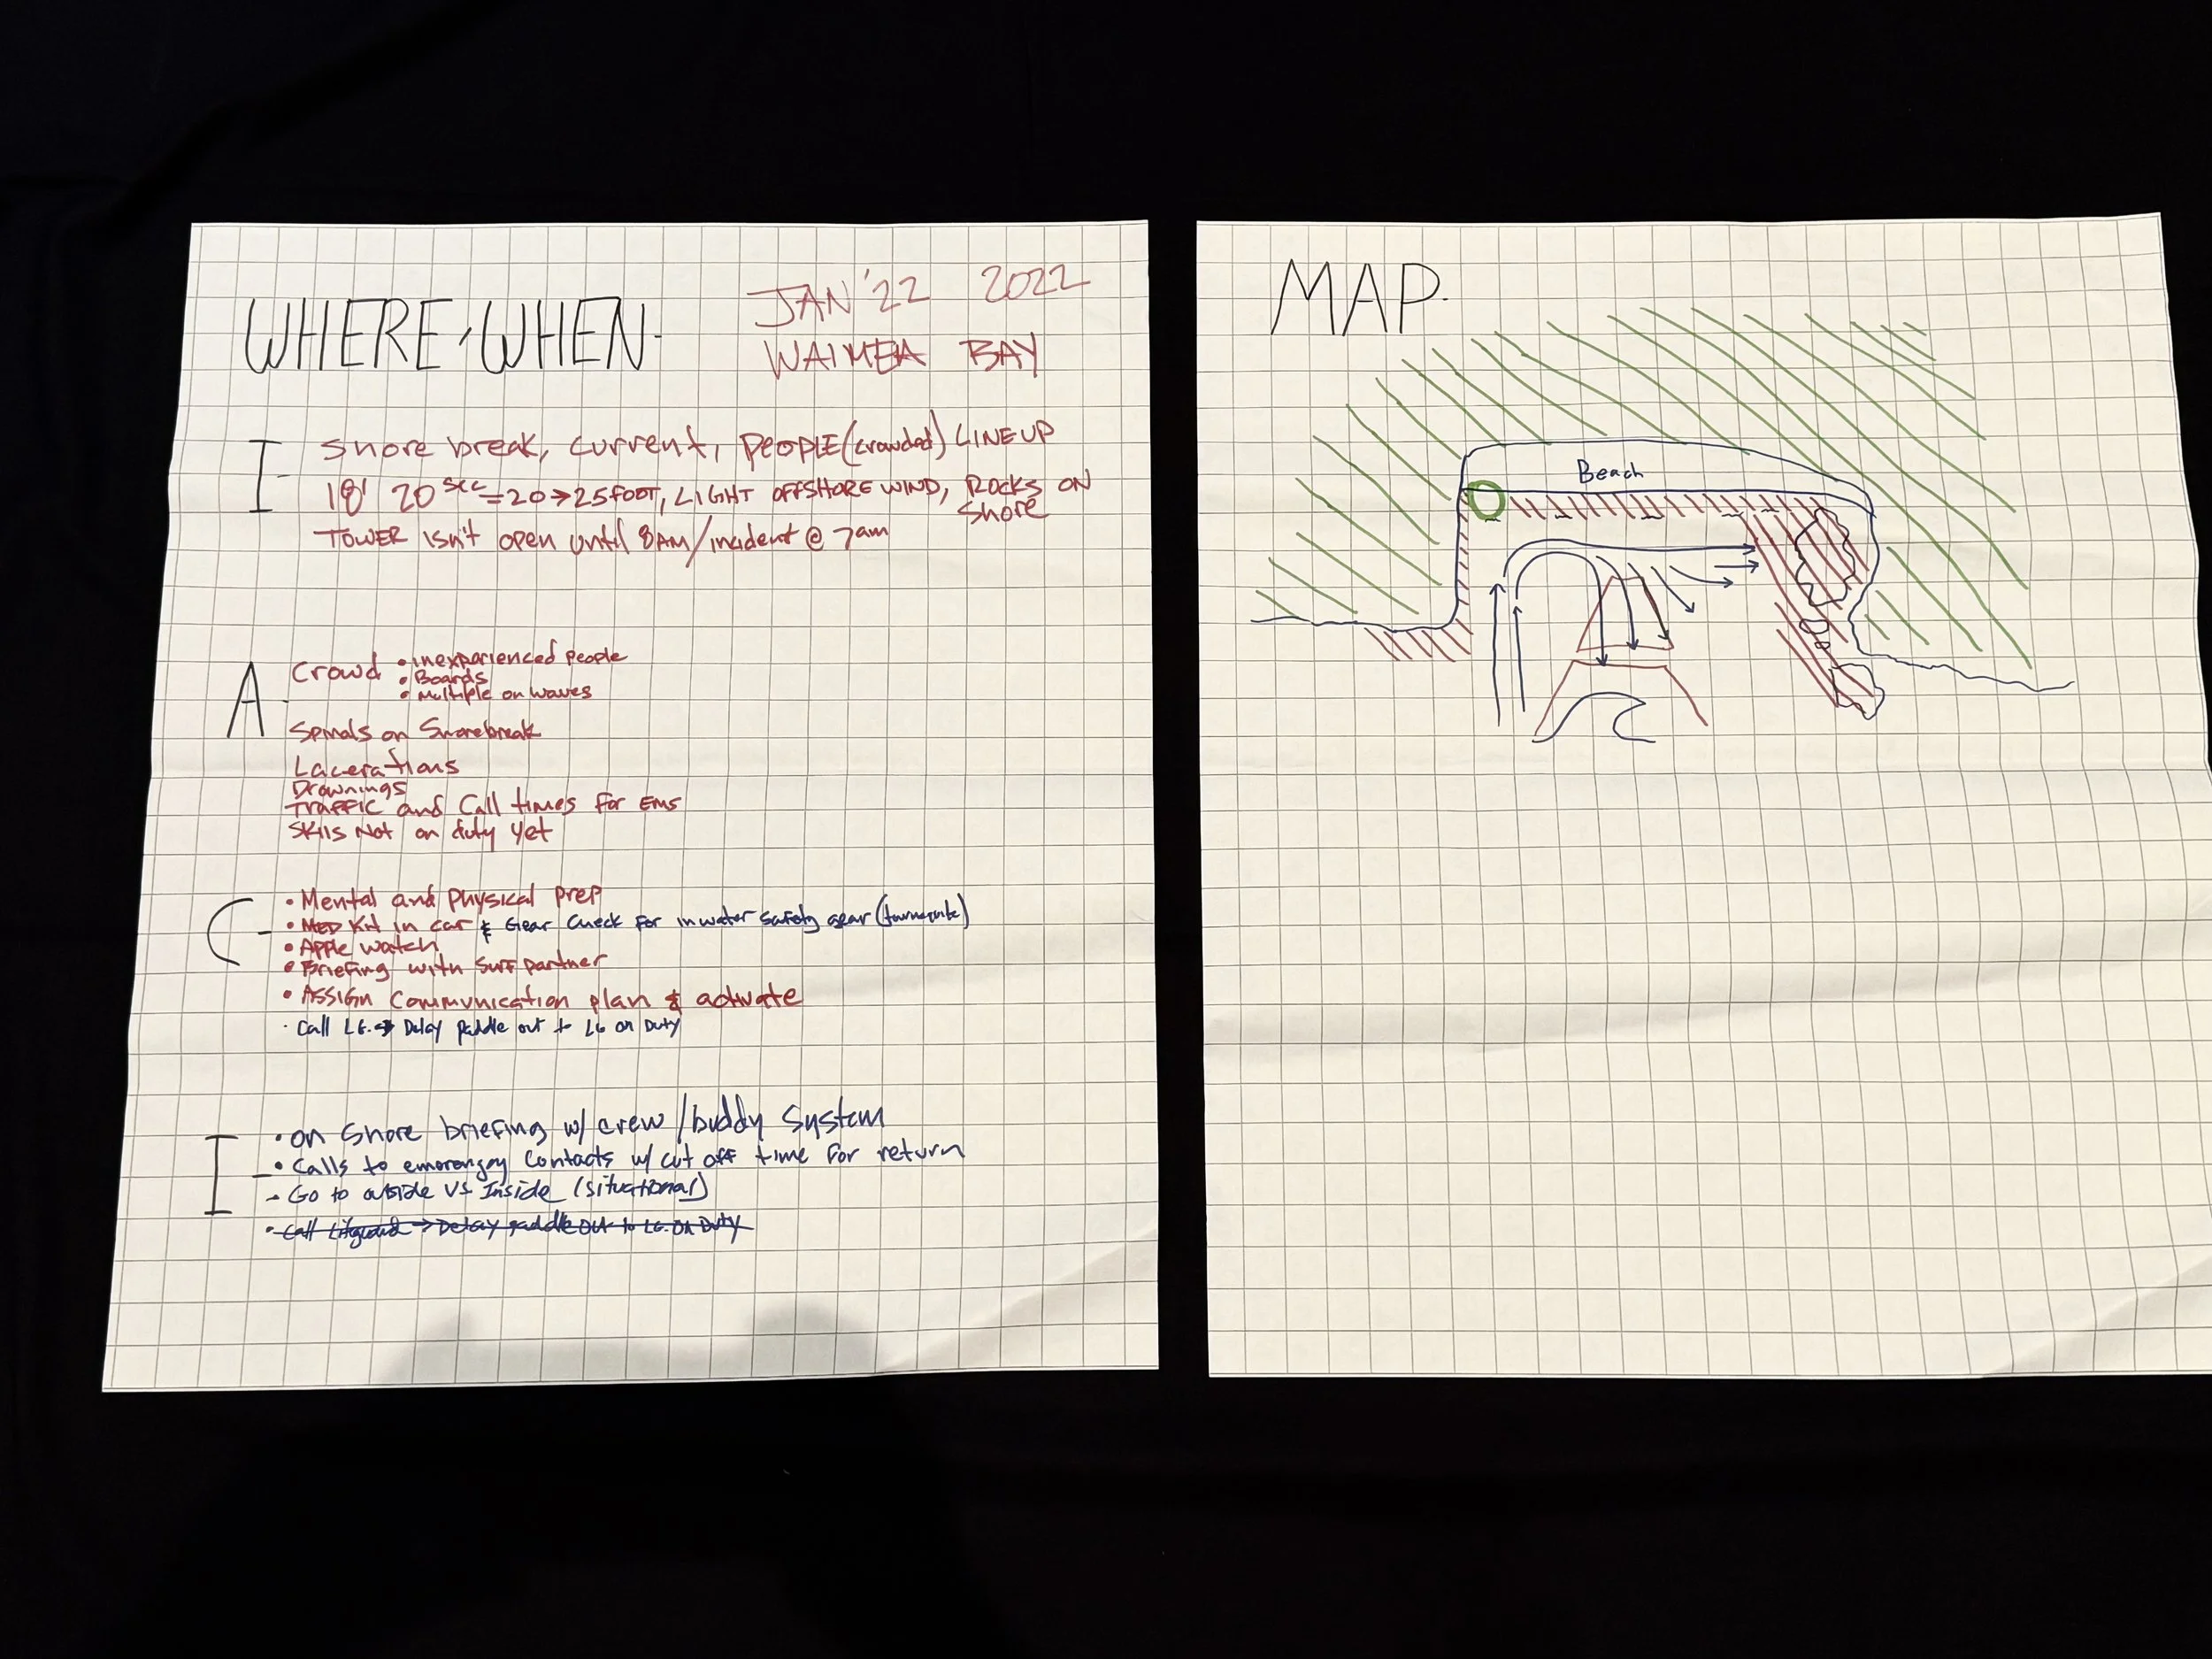 WHERE/WHEN-
JAN '22 2022
WAIMEA BAY
I- Shore break, current, PEOPLE (crowded) LINEUP
18' 20 sec = 20→25 FOOT, LIGHT OFFSHORE WIND, ROCKS ON
Shore
TOWER isn't open until 8AM/incident @ 7am
A- Crowd • inexperienced people
• Boards
• Multiple on waves
Spinals on Shorebreak
Lacerations
Drownings
Traffic and Call times for EMS
SKIIs Not on duty yet
C- • Mental and Physical prep
• MED Kit in car & Gear Check for in water safety gear (tourniquite)
• Apple watch
• Briefing with Surf partner
• ASSIGN Communication plan & activate
• Call LG. → Delay paddle out to LG on Duty
I- • on Shore briefing w/ crew/buddy system
• Calls to emergency Contacts w/ cut off time for return
- Go to outside VS Inside (situational)
• Call Lifguard → Delay paddle out to LG. On Duty
MAP-
Beach